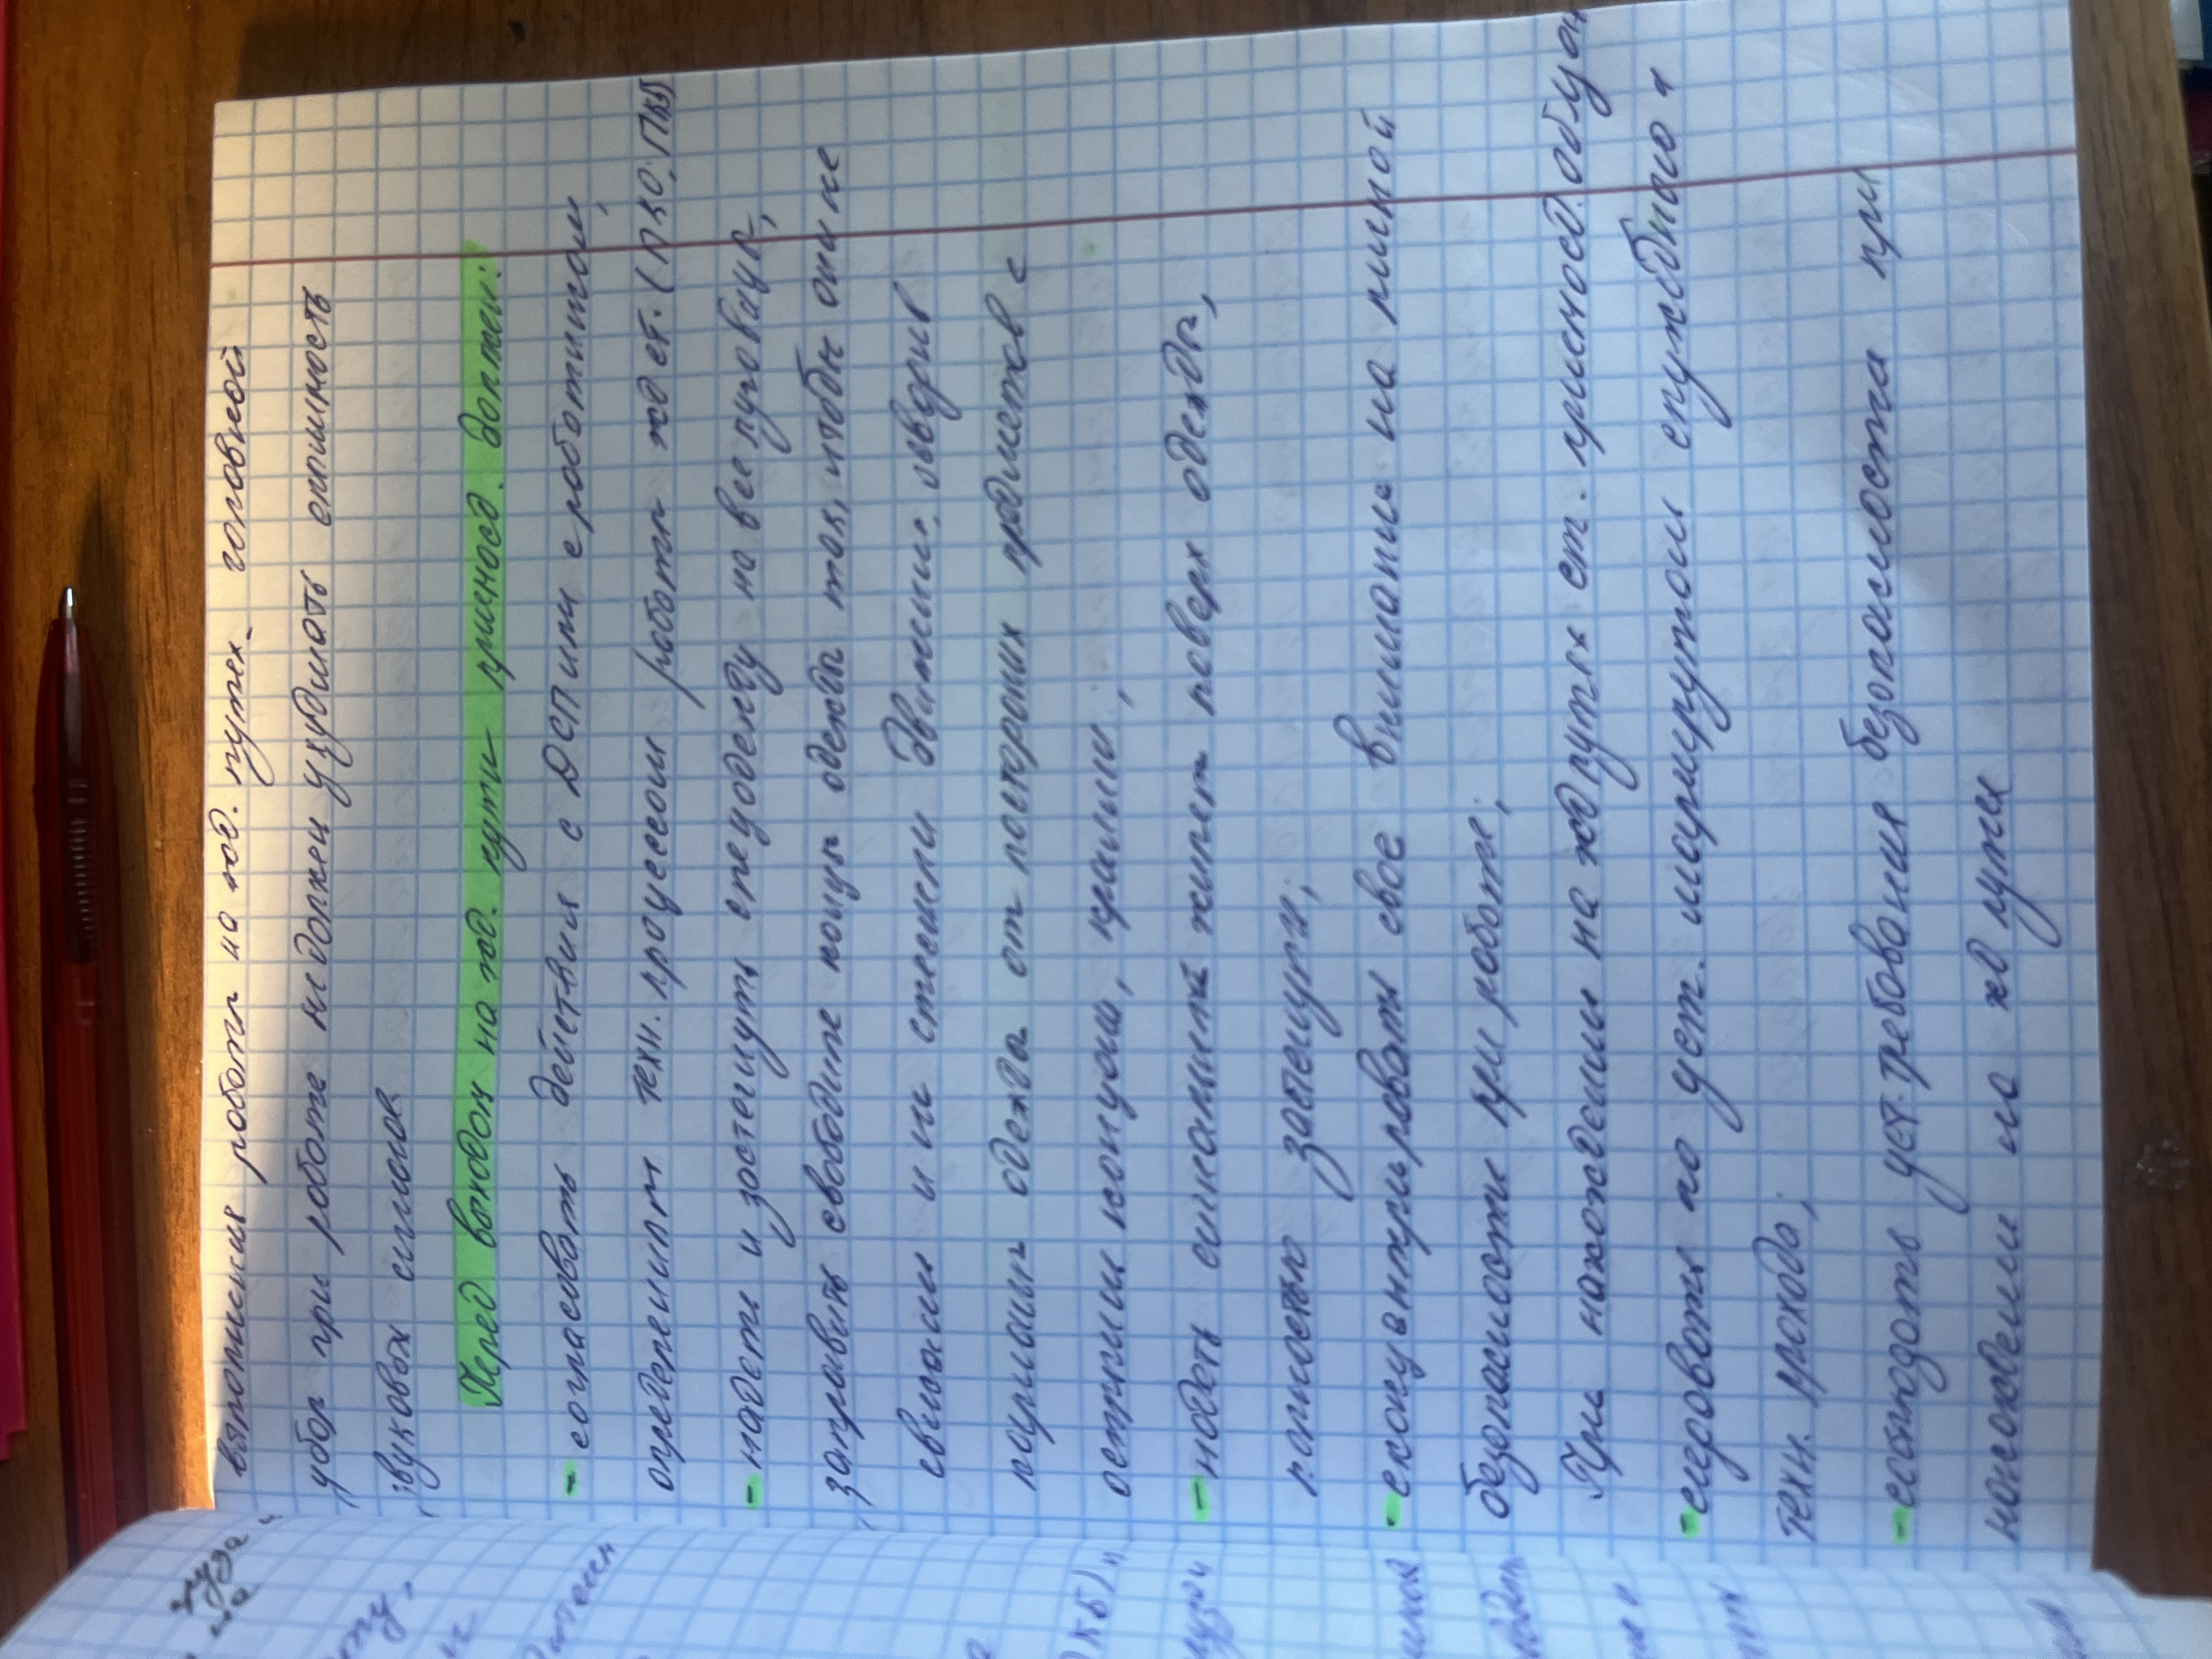 выполнения работы на жд. путях головной
убор при работе не должен ухудшать слышимость
звуковых сигналов
Перед выходом на жд. пути приёмосд. должен:
- согласовать действия с ДСП или с работником,
определил техн. процессом работы жд ст. (ПКО; ПКБ)
- надеть и застегнуть спецодежду на все пуговицы,
заправить свободные концы одежды так, чтобы они не
свисали и не стесняли движение. Убрав
карманы одежды от посторонних предметов с
острыми концами, краями;
- надеть сигнальный жилет поверх одежды,
полностью застегнут;
- сконцентрировать свое внимание на личной
безопасности при работе;
При нахождении на жд путях ст. приемосд. обязан
- следовать по уст. маршрутам служебного и
техн. прохода;
- соблюдать уст. требования безопасности при
нахождении на жд путях
труда и
на
ПКБ)